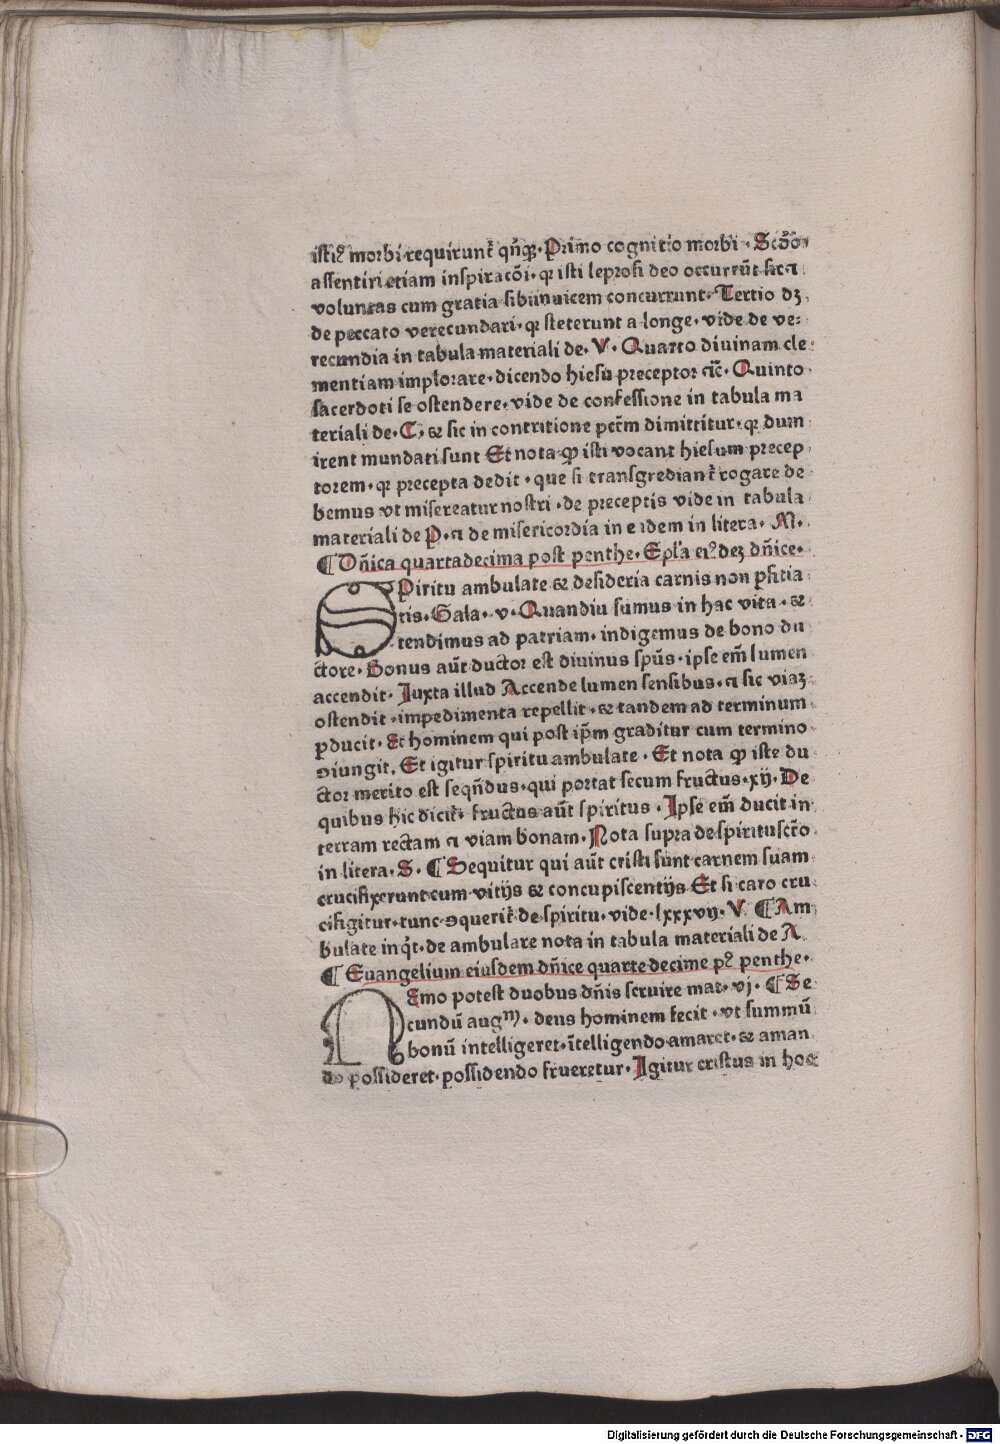 istiꝰ morbi requirunt᷑ qn̄qꝫ · Primo cognitio morbi · Scdō
assentiri etiam inspiracōi · qꝛ isti leprosi deo occurrūt sic ⁊
voluntas cum gratia sibiinuicem concurrunt · Tertio dꝫ
de peccato verecundari · qꝛ steterunt a longe · vide de ve⸗
recundia in tabula materiali de · V · Quarto diuinam cle
mentiam implorare · dicendo hiesu preceptor ⁊c̄ · Quinto
sacerdoti se ostendere · vide de confessione in tabula ma
teriali de · C, & sic in contritione pctm̄ dimittitur · qꝛ dum
irent mundati sunt Et nota ꝙ isti vocant hiesum precep
torem · qꝛ precepta dedit · que si transgrediant᷑ rogare de
bemus vt misereatur nostri · de preceptis vide in tabula
materiali de P · ⁊ de misericordia in eadem in litera · M ·
¶ Dn̄ica quartadecima post penthe · Epl̄a eiꝰdeꝫ dn̄ice ·
SPiritu ambulate & desideria carnis non ꝑfitia
tis · Gala · v · Quandiu sumus in hac vita · &
tendimus ad patriam · indigemus de bono du
ctore · Bonus aūt ductor est diuinus spūs · ipse em̄ lumen
accendit · Juxta illud Accende lumen sensibus · ⁊ sic viaꝫ
ostendit · impedimenta repellit · & tandem ad terminum
ꝓducit · Et hominem qui post ip̄m graditur cum termino
ꝯiungit, Et igitur spiritu ambulate · Et nota ꝙ iste du
ctor merito est seqn̄dus · qui portat secum fructus · xij · De
quibus hic dicit᷑ · fructus aūt spiritus · Ipse em̄ ducit in
terram rectam ⁊ viam bonam · Nota supra de spiritu sctō
in litera · S · ¶ Sequitur qui aūt cristi sunt carnem suam
crucifixerunt cum vitijs & concupiscentijs Et si caro cru
cifigitur · tunc ꝯquerit᷑ de spiritu · vide · lxxxvij · V ¶ Am
bulate inqͥt · de ambulare nota in tabula materiali de A
¶ Euangelium eiusdem dn̄ice quarte decime pꝰ penthe ·
NEmo potest duobus dn̄is seruire mat · vj · ¶ Se
cundū augᵐ · deus hominem fecit · vt summū
bonū intelligeret · ītelligendo amaret · & aman
do possideret · possidendo frueretur · Igitur cristus in hoc
Digitalisierung gefördert durch die Deutsche Forschungsgemeinschaft - DFG